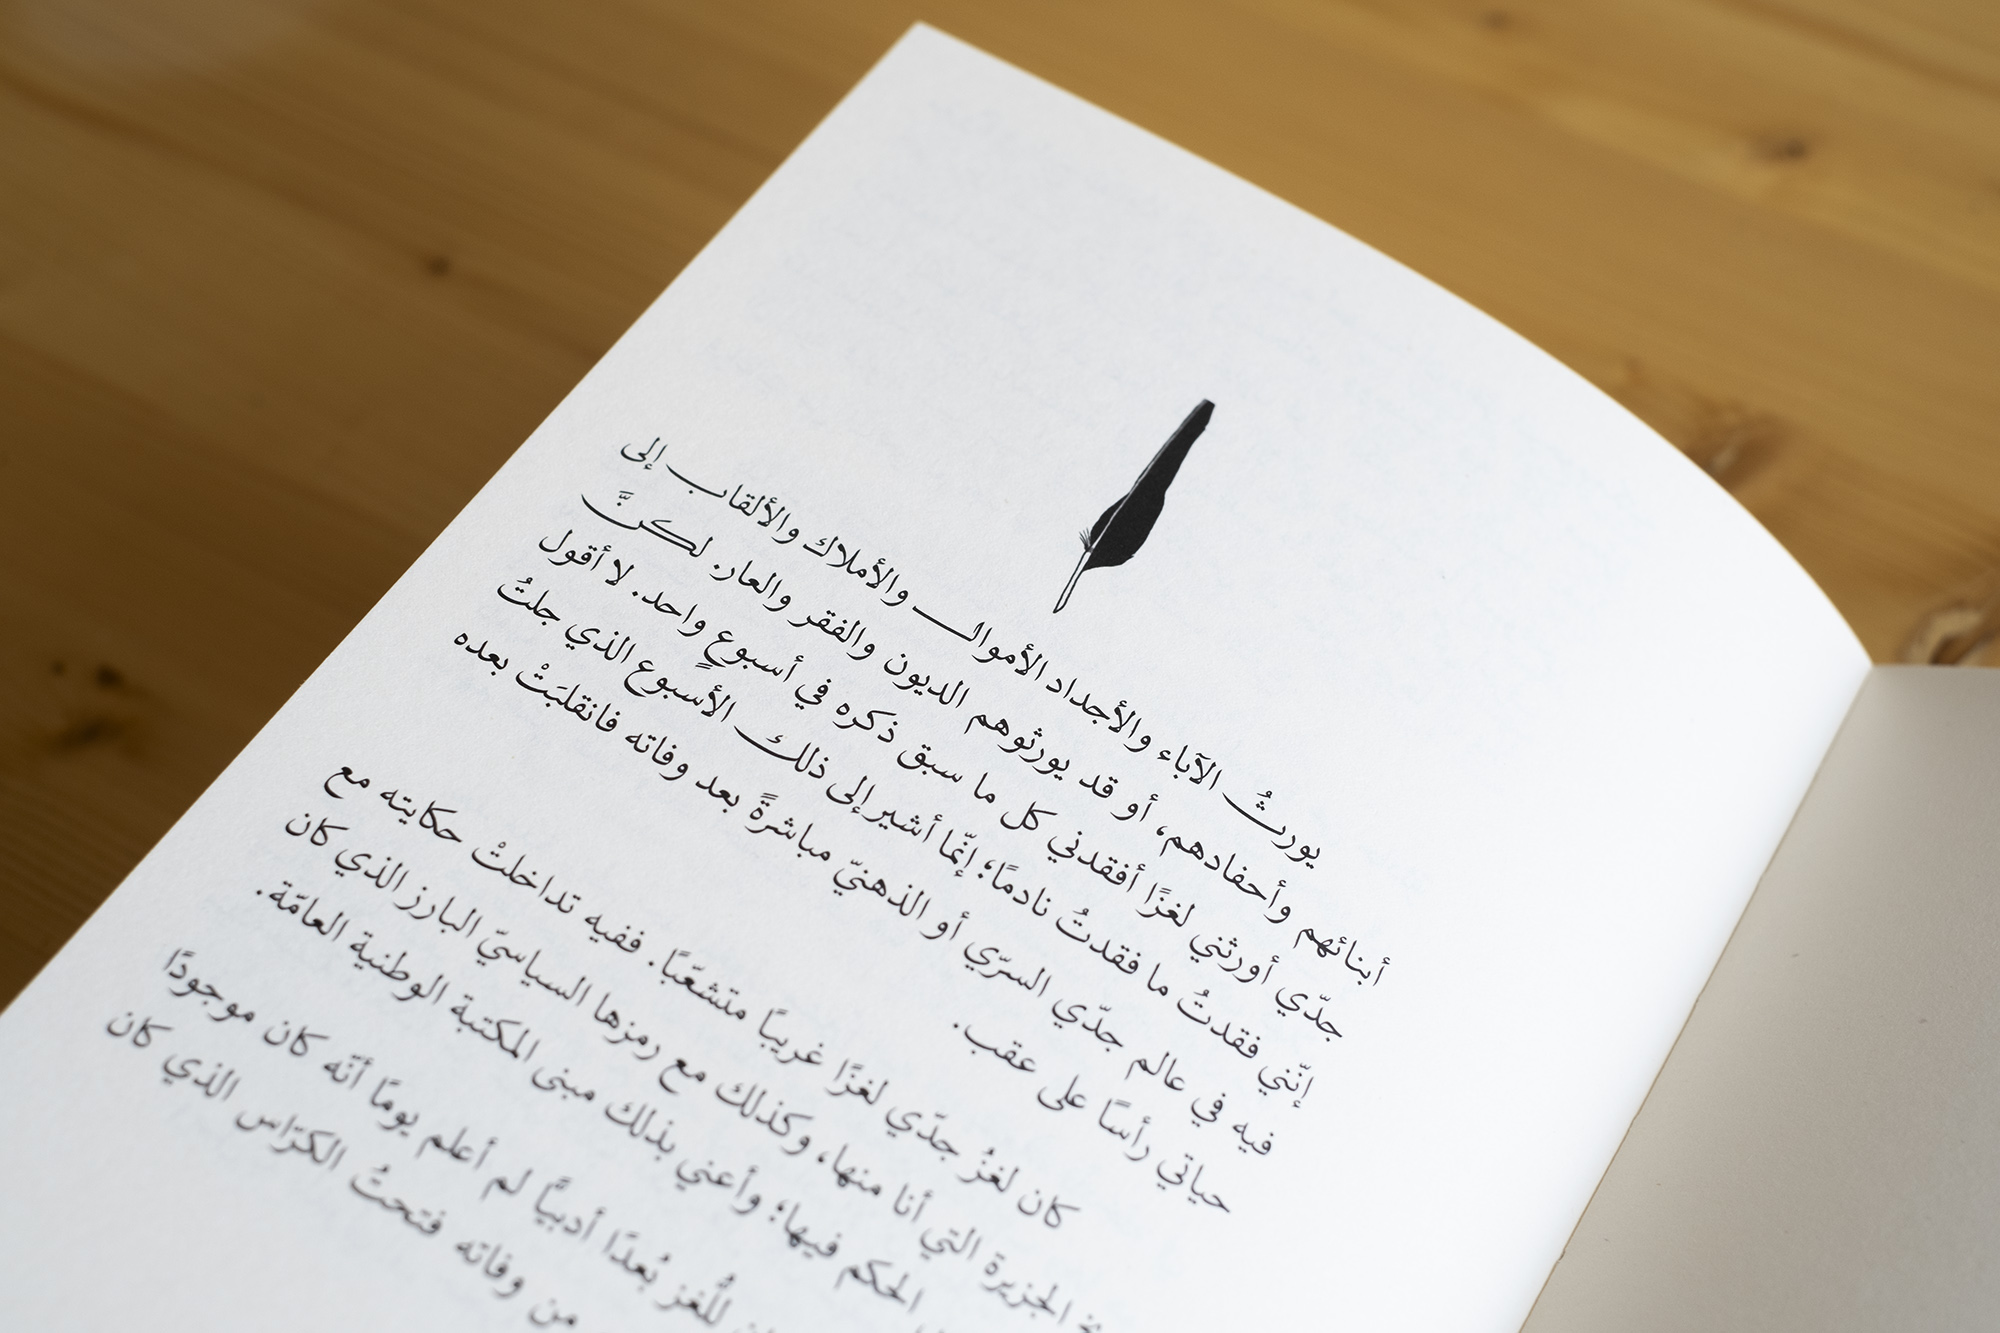 يورثُ الآباء والأجداد الأموال والأملاك والألقاب إلى
أبنائهم وأحفادهم، أو قد يورثوهم الديون والفقر والعار. لكنَّ
جدّي أورثني لغزًا أفقدني كل ما سبق ذكره في أسبوعٍ واحد. لا أقول
إنّني فقدتُ ما فقدتُ نادمًا؛ إنّما أشير إلى ذلك الأسبوع الذي جلتُ
فيه في عالم جدّي السرّي أو الذهنيّ مباشرةً بعد وفاته فانقلبَتْ بعده
حياتي رأسًا على عقب.
كان لغزُ جدّي لغزًا غريبًا متشعّبًا. ففيه تداخلتْ حكايته مع
الجزيرة التي أنا منها، وكذلك مع رمزها السياسيّ البارز الذي كان
الحكم فيها؛ وأعني بذلك مبنى المكتبة الوطنية العامّة.
للُّغز بُعدًا أدبيًّا لم أعلم يومًا أنّه كان موجودًا
من وفاته فتحتُ الكرّاس الذي كان